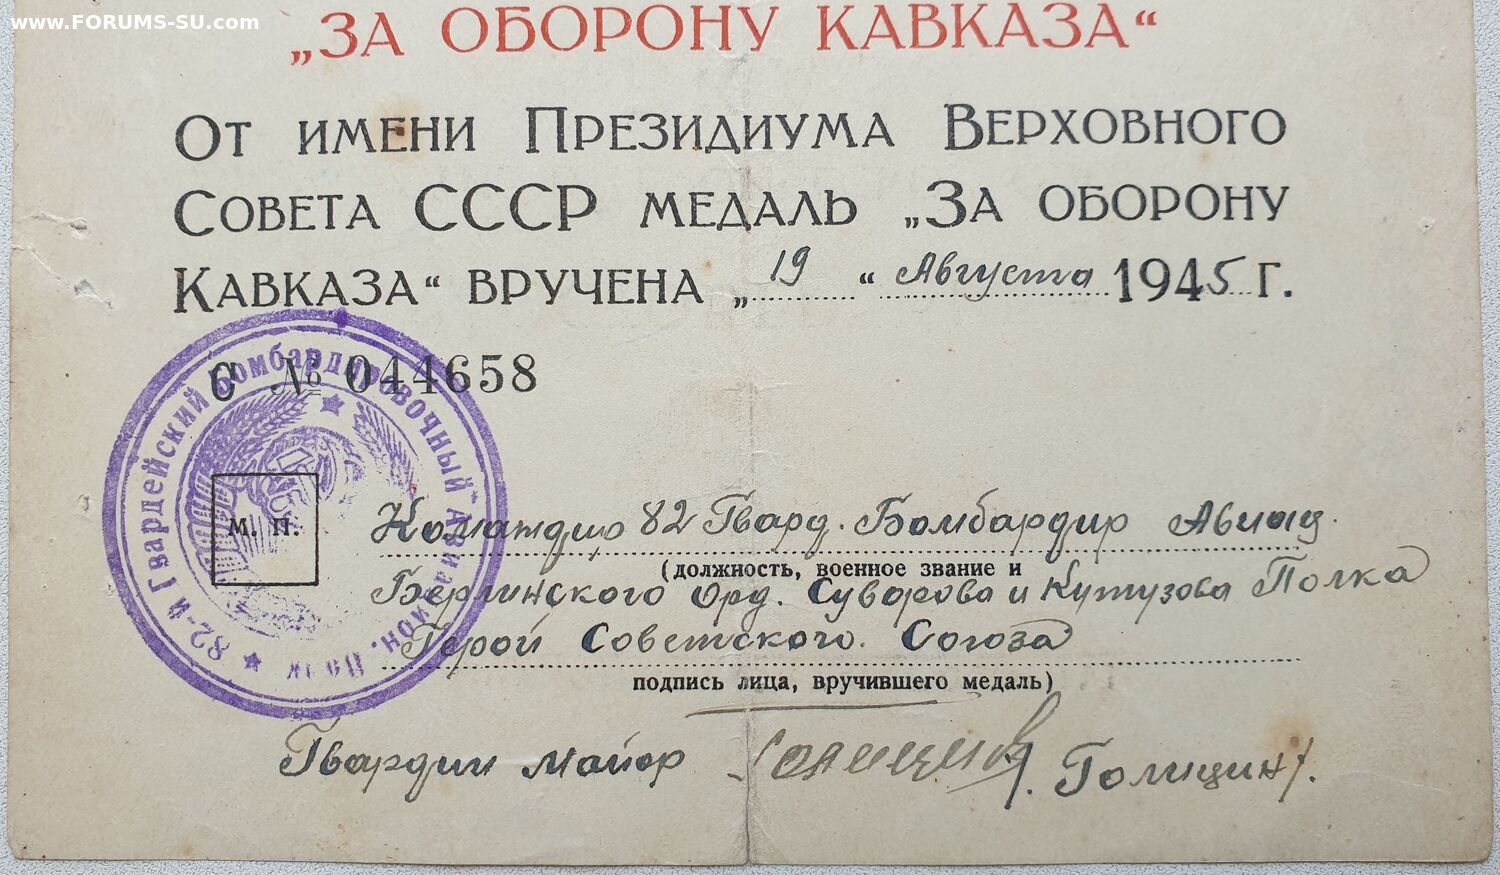 www.FORUMS-SU.com
„ЗА ОБОРОНУ КАВКАЗА“
От имени Президиума Верховного
Совета СССР медаль „За оборону
Кавказа“ вручена „19“ Августа 1945 г.
С № 044658
82-й Гвардейский Бомбардировочный Авиацион. Полк
М. П.
Командир 82 Гвард. Бомбардир Авиац.
(должность, военное звание и
Берлинского Орд. Суворова и Кутузова Полка
Герой Советского Союза
подпись лица, вручившего медаль)
Гвардии майор /Голицин/.